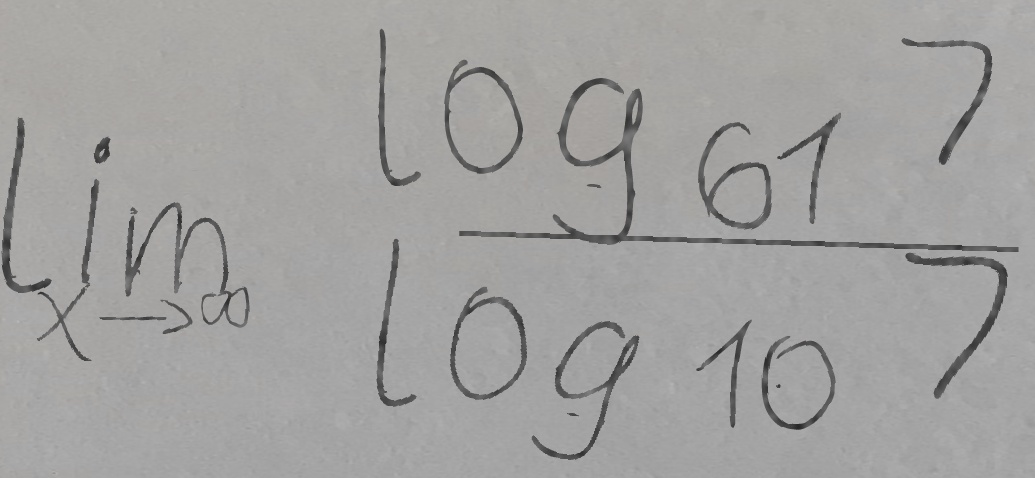 lim x→∞ log 61 7
log 10 7